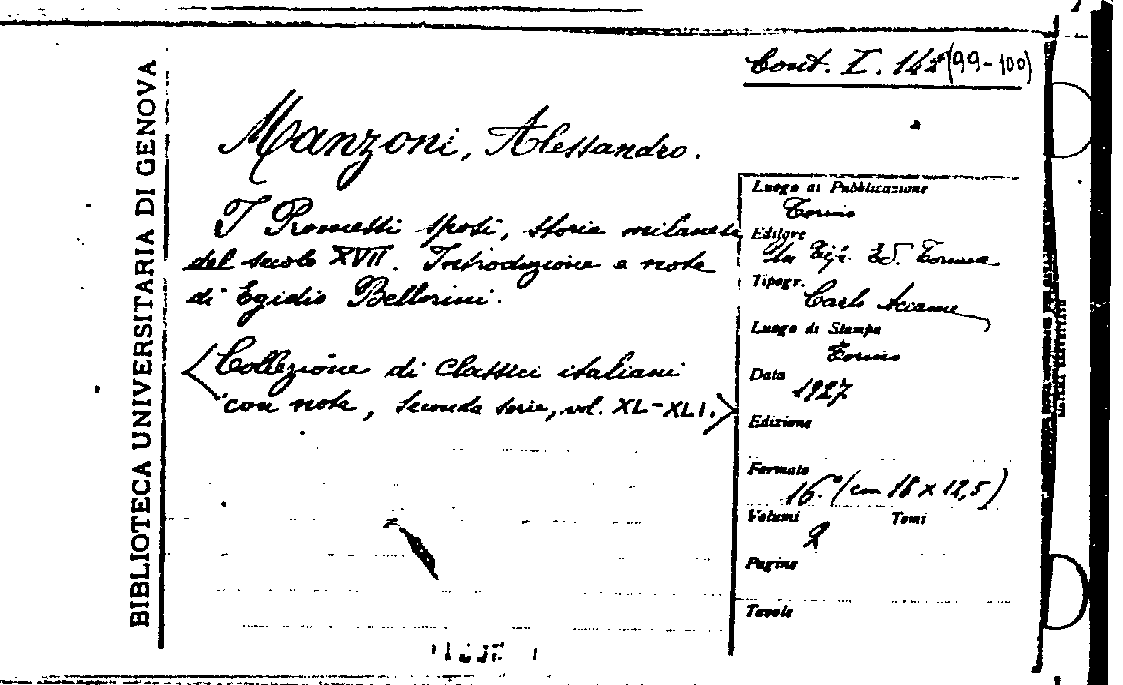 BIBLIOTECA UNIVERSITARIA DI GENOVA
Cont. I. 142 (99-100)
Manzoni, Alessandro.
I Promessi sposi, storia milanese
del secolo XVII. Introduzione e note
di Egidio Bellorini.
<Collezione di Classici italiani
con note, Seconda serie, vol. XL-XLI.>
Luogo di Pubblicazione
Torino
Editore
Tip.
Tipogr.
Carlo Accame
Luogo di Stampa
Torino
Data
1927
Edizione
Formato
16.° (cm 18 x 12,5)
Volumi Tomi
2
Pagine
Tavole